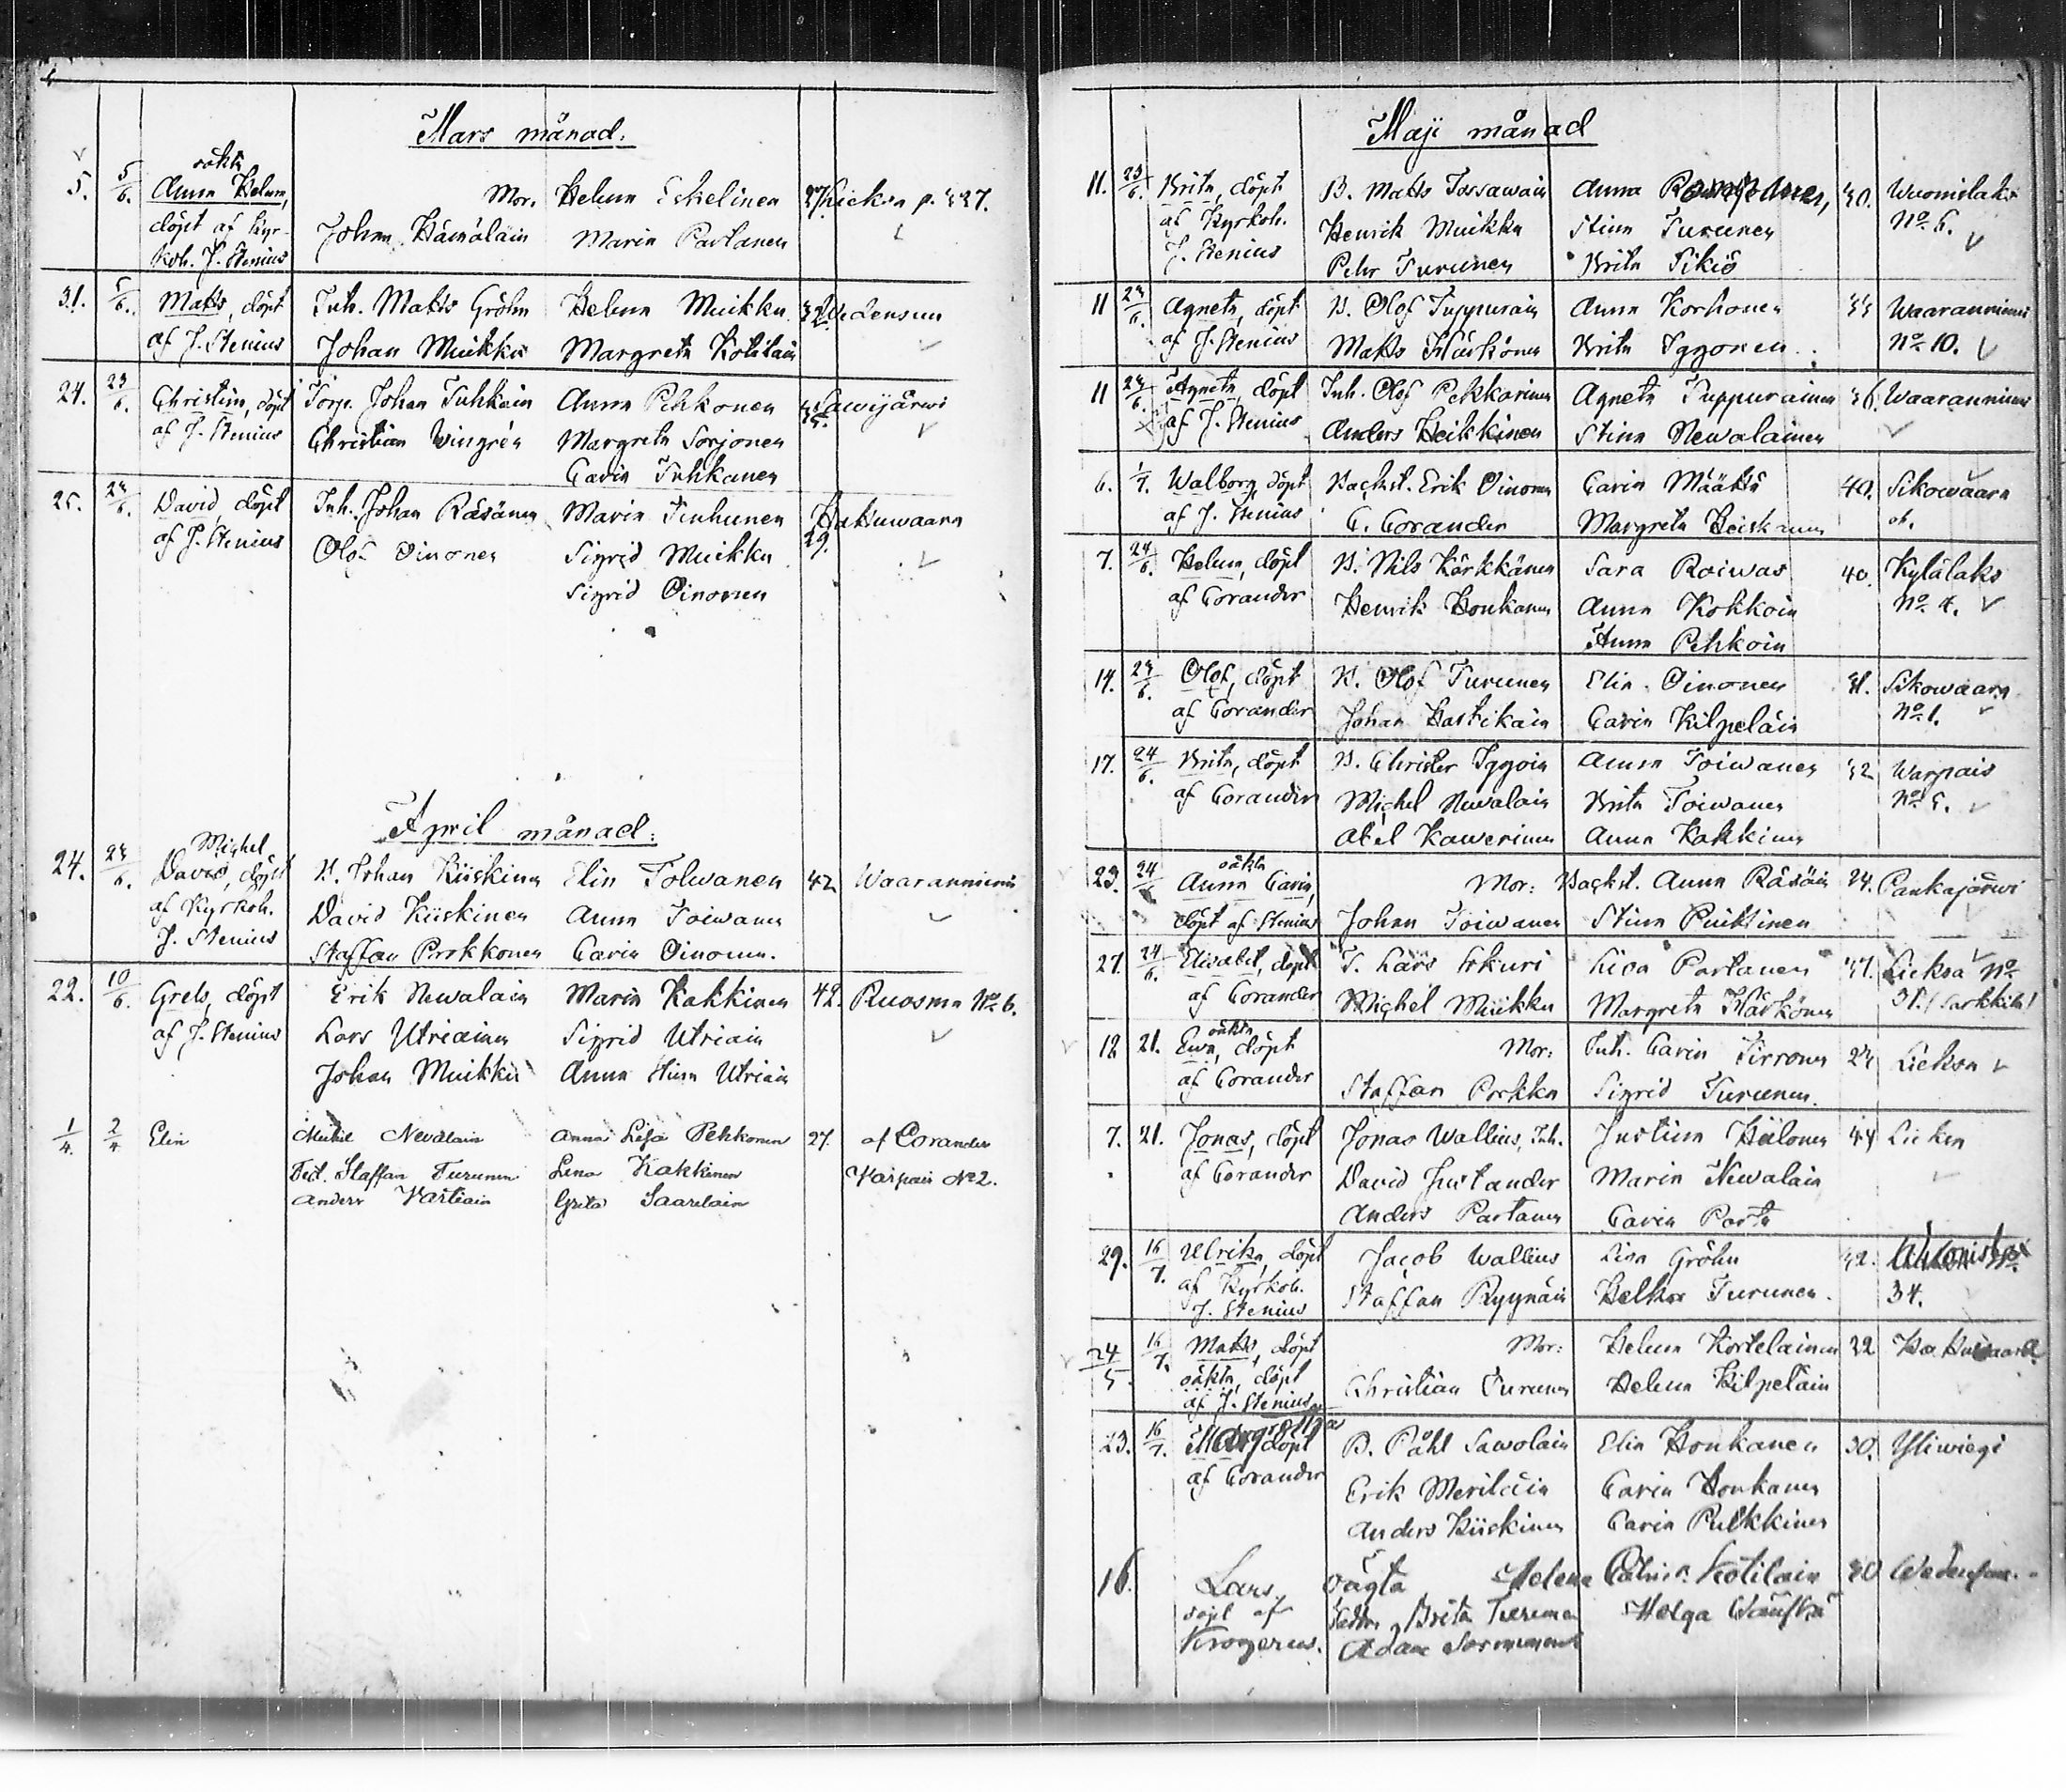 Mars månad.
5. 5/6. oäkta
Anna Helena, Mor. Helena Eskelinen 27 Lieksa p. 327.
döpt af Kyr- Johan Hämäläin Maria Partanen
koh. J. Stenius
31. 5/6. Matts, döpt Inh. Matts Gröhn Helena Muikku
af J. Stenius Johan Muikku Margreta Kotilain
24. 23/6. Christin, döpt Torp. Johan Tuhkain Anna Pehkonen Sawijärwi
af J. Stenius Christian Wingrén Margreta Sorjonen
Carin Tuhkanen
25. 24/6. David, döpt Inh. Johan Räsänen Maria Tenhunen Hattuwaara
af J. Stenius Olof Oinonen Sigrid Muikku 29.
Sigrid Oinonen
April månad.
Michel
24. 24/6. David, döpt B. Johan Kiiskinen Elin Tolwanen 42 Waaranniemi
af Kyrkoh. David Kiiskinen Anna Toiwanen
J. Stenius Staffan Porkkonen Carin Oinonen.
22. 10/6. Grels, döpt Erik Newalain Maria Kakkinen 42. Ruosma No 6.
af J. Stenius Lars Utriainen Sigrid Utriain
Johan Muikku Anna Stina Utriain
1/4. 2/4 Elin Michel Nevalain Anna Lisa Pehkonen 27. af Corander
Test. Staffan Turunen Lena Kakkinen Varpais No 2.
Anders Vartiain Greta Saarelain
Maji månad
11. 23/6. Brita, döpt B. Matts Tossawain Anna 30. Wuonislaks
af Kyrkoh. Henrik Muikku Stina Turunen No. 6.
J. Stenius Pehr Turunen Brita Sikiö
11 24/6. Agneta, döpt B. Olof Tuppurain Anna Korhonen 33 Waaranniemi
af J. Stenius Matts Härkönen Brita Iggonen No. 10.
11 24/6. Agneta, döpt Inh. Olof Pekkarinen Agneta Tuppurainen 36. Waaranniemi
af J. Stenius Anders Heikkinen Stina Newalainen
6. 1/7. Walborg, döpt Backst. Erik Oinonen Carin Määttä 40. Sikowaara
af J. Stenius C. Corander Margreta Heiskanen
7. 24/6. Helena, döpt B. Nils Kärkkänen Sara Roiwas 40. Kylälaks
af Corander Henrik Honkanen Anna Kokkoin No. 4.
Anna Pehkoin
14. 24/6. Olof, döpt B. Olof Turunen Elin Oinonen 31. Sikowaara
af Corander Johan Hartikain Carin Kilpeläin No. 1.
17. 24/6. Brita, döpt B. Christer Iggoin Anna Toiwanen 32 Warpais
af Corander Michel Newalain Brita Toiwanen No. 5.
Abel Kawerinen Anna Kakkinen
oäkta
23. 24/6 Anna Carin, Mor: Backst. Anna Räsäin 24. Pankajärwi
döpt af Stenius Johan Toiwanen Stina Puittinen
27. 24/6. Elisabet, döpt T. Lars Erkuri Lisa Partanen 37. Lieksa No
af Corander Michel Muikku Margreta Härkönen 31. (Sarkkila)
oäkta
12 21. Ewa, döpt Mor: Inh. Carin Tirronen 24 Lieksa
af Corander Staffan Porkka Sigrid Turunen.
7. 21. Jonas, döpt Jonas Wallius, Inh. Justina Hälonen 44 Lieksa
af Corander David Justander Maria Newalain
Anders Partanen Carin Porta
29. 16/7. Ulrika, döpt Jacob Wallius Lisa Gröhn 32. No.
af Kyrkoh. Staffan Ryynäin Helka Turunen. 34.
J. Stenius
24/5. 16/7. Matts, döpt Mor: Helena Kortelainen 32 Hattuwaara
oäkta, döpt Christian Turunen Helena Kilpeläin
af J. Stenius
23. 16/7. Margretha döpt B. Påhl Sawolain Elin Honkanen 30. Yliwiegi
af Corander Erik Meriläin Carin Honkanen
Anders Kiiskinen Carin Pulkkinen
16. Lars, oägta Helena Catrina Kotilain 30
döpt af Brita Turunen Helga
Krogerus. Adam Sormunen